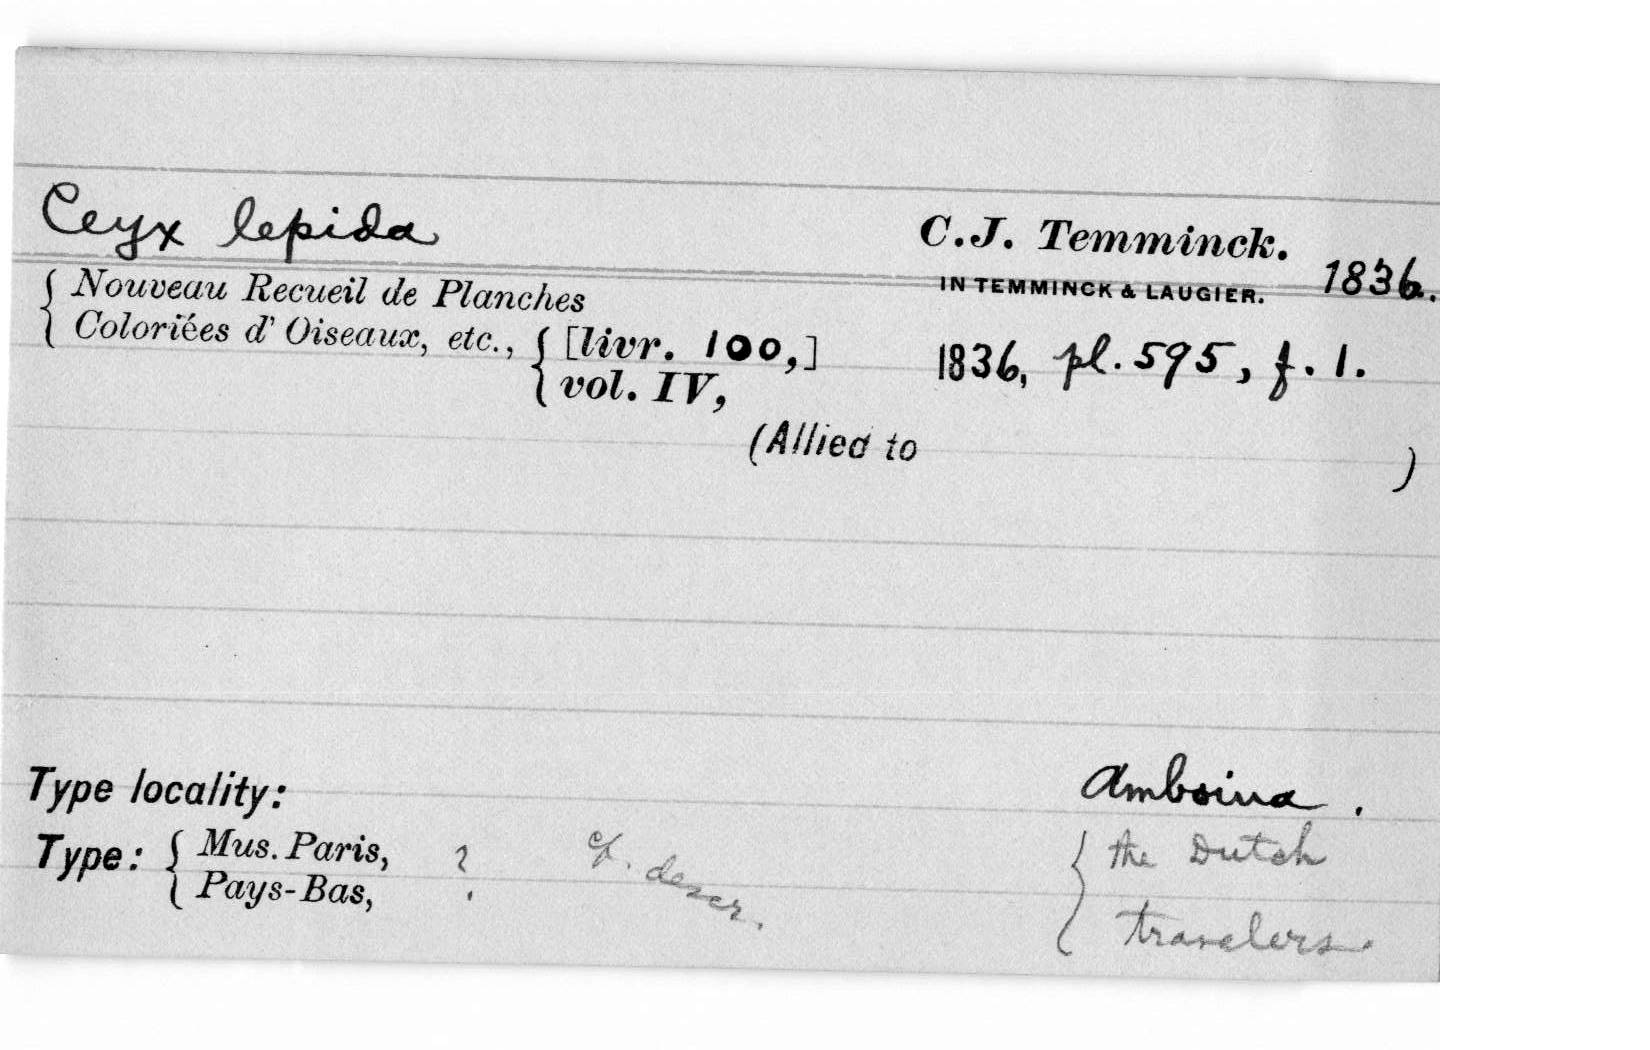 Ceyx lepida
C.J. Temminck.
IN TEMMINCK & LAUGIER. 1836.
Nouveau Recueil de Planches
Coloriées d' Oiseaux, etc., [livr. 100,]
vol. IV,
1836, pl. 595, f. 1.
(Allied to )
Type locality: Amboina.
Type: Mus. Paris,
Pays-Bas,
? cf. descr.
the Dutch
travelers.